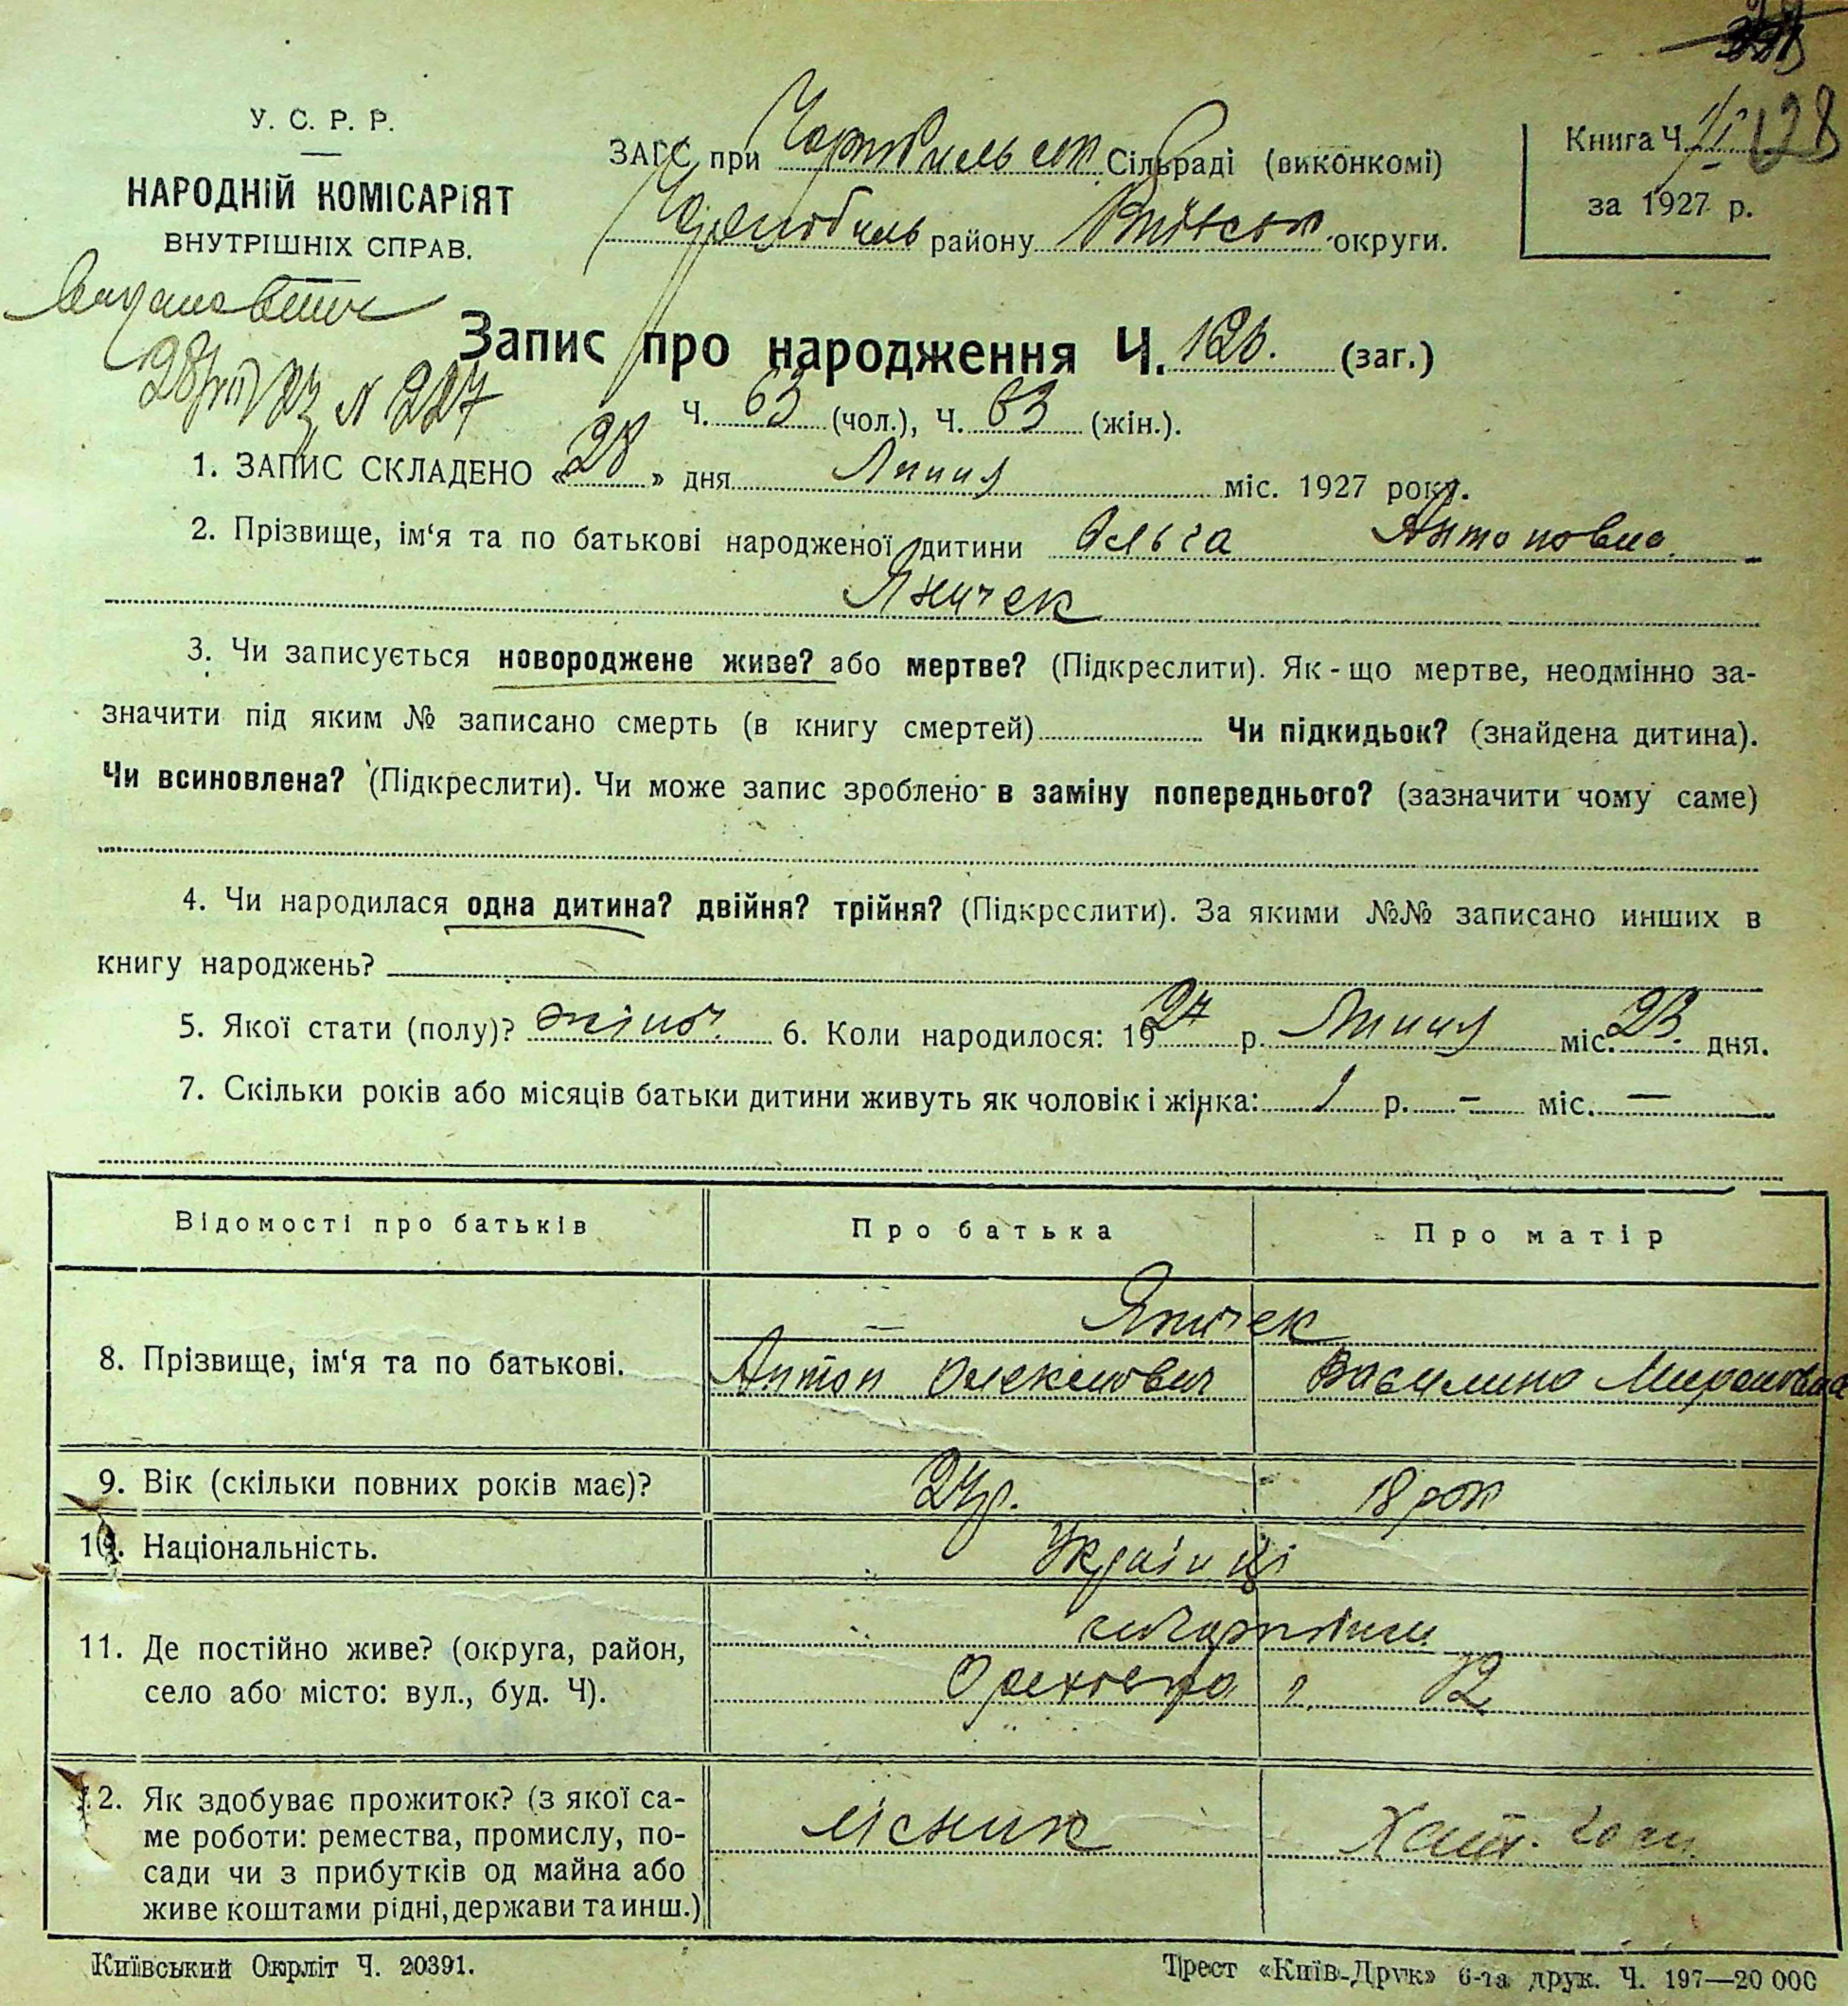 128
У. С. Р. Р.
НАРОДНІЙ КОМІСАРІЯТ
ВНУТРІШНІХ СПРАВ.
ЗАГС при Сільраді (виконкомі)
району округи.
Книга Ч.
за 1927 р.
28/VII 27 N 227
Запис про народження Ч. 126. (заг.)
Ч. 63 (чол.), Ч. 63 (жін.).
1. ЗАПИС СКЛАДЕНО «28» дня Липня міс. 1927 року.
2. Прізвище, ім‘я та по батькові народженої дитини Ольга Антоновна
3. Чи записується новороджене живе? або мертве? (Підкреслити). Як-що мертве, неодмінно за-
значити під яким № записано смерть (в книгу смертей) Чи підкидьок? (знайдена дитина).
Чи всиновлена? (Підкреслити). Чи може запис зроблено в заміну попереднього? (зазначити чому саме)
4. Чи народилася одна дитина? двійня? трійня? (Підкреслити). За якими №№ записано инших в
книгу народжень?
5. Якої стати (полу)? жіноч. 6. Коли народилося: 1927 р. Липня міс. 23 дня.
7. Скільки років або місяців батьки дитини живуть як чоловік і жінка: 1 р. – міс. —
Відомості про батьків Про батька Про матір
8. Прізвище, ім‘я та по батькові.
Антон Олексиович Василина Мироновна
9. Вік (скільки повних років має)? 24р. 18 рок
10. Національність. Українці
11. Де постійно живе? (округа, район,
село або місто: вул., буд. Ч). 12
12. Як здобуває прожиток? (з якої са-
ме роботи: ремества, промислу, по-
сади чи з прибутків од майна або
живе коштами рідні, держави та инш.)
Хатн. госп.
Київський Окрліт Ч. 20391.
Трест «Київ-Друк» 6-та друк. Ч. 197—20 000